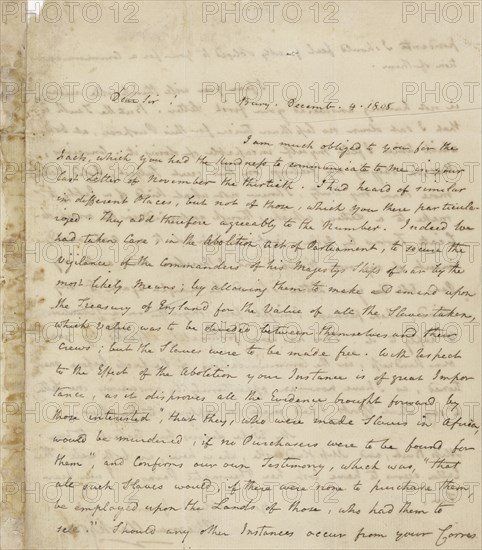 Dear Sir Bury. Decembr. 4. 1808
I am much obliged to you for the
Facts, which you had the Kindness to communicate to me in your
last Letter of November the thirtieth. I had heard of similar
in different Places, but not of those, which you there particula-
rized. They add therefore agreeably to the Number. Indeed we
had taken Care, in the Abolition Act of Parliament, to secure the
Vigilance of the Commanders of his Majestys Ships of War by the
most likely Means; by allowing them to make a demand upon
the Treasury of England for the Value of all the Slaves taken,
which Value was to be divided between themselves and their
Crews; but the Slaves were to be made free. With Respect
to the Effect of the Abolition your Instance is of great Impor-
tance, as it disproves all the Evidence brought forward by
those interested, "that they, who were made Slaves in Africa,
would be murdered, if no Purchasers were to be found for
them", and Confirms our own Testimony, which was, "that
all such Slaves would, if there were none to purchase them,
be employed upon the Lands of those, who had them to
sell." Should any other Instances occur from your Corres
PHOTO12